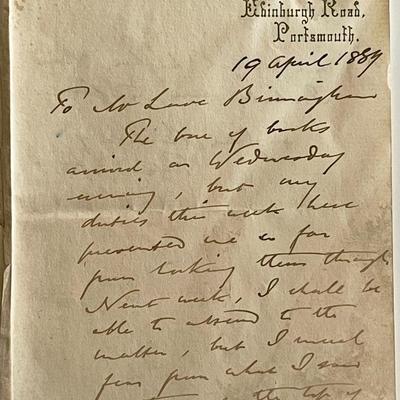 Edinburgh Road,
Portsmouth.
19 April 1889
To Mr Love Birmingham
The box of books
arrived on Wednesday
evening, but my
duties this week have
prevented me so far
from looking them through
Next week, I shall be
able to attend to the
matter, but I much
fear from what I saw
the top of